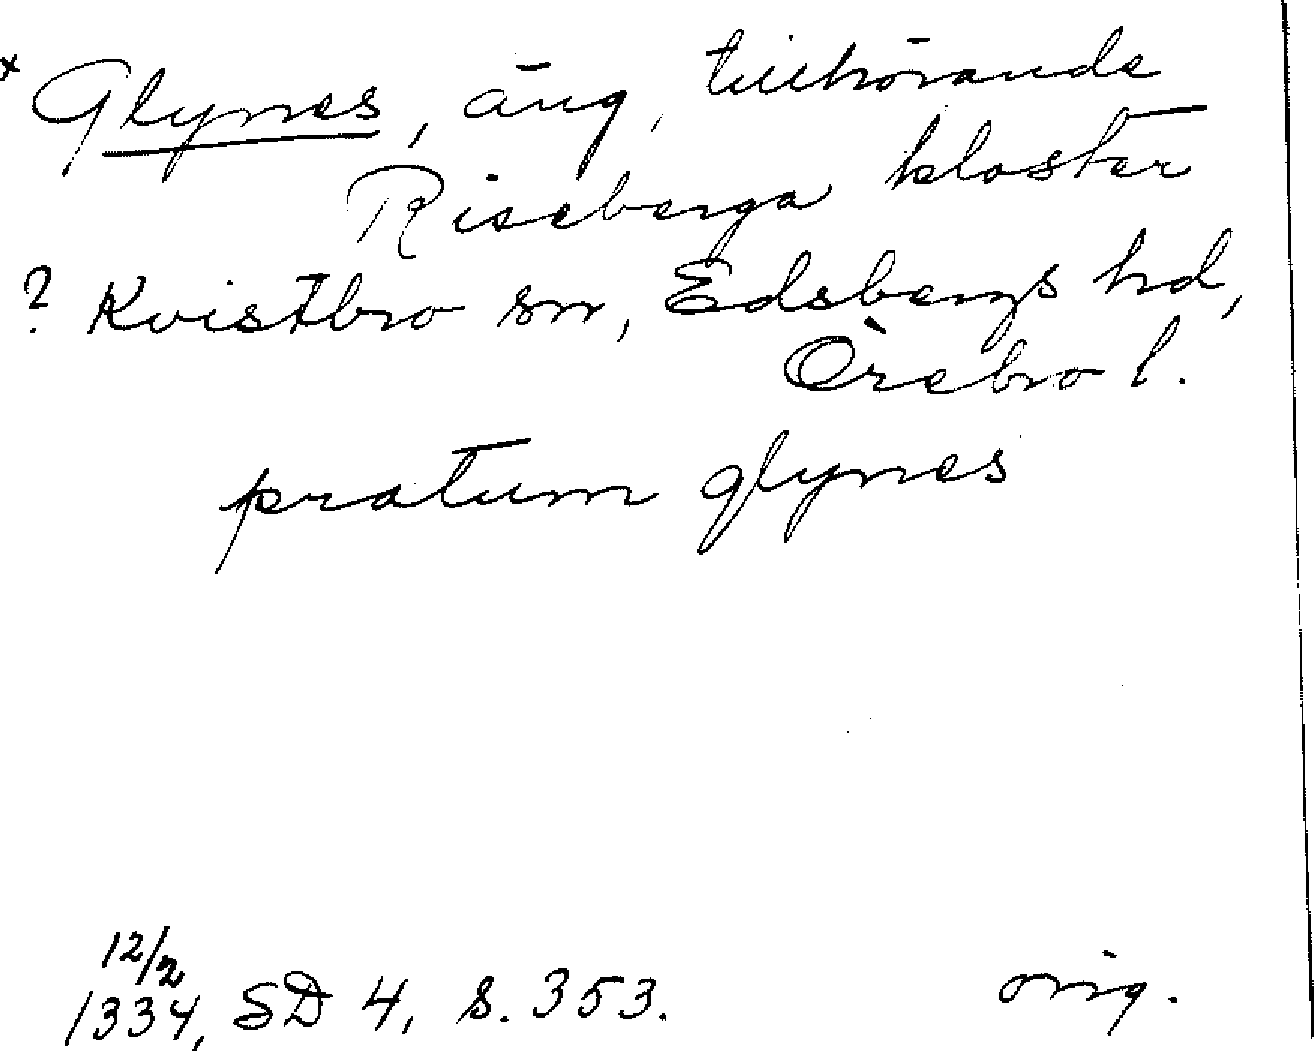 x Glynes, äng, tillhörande
Riseberga kloster
? Kvistbro sn, Edsbergs hd,
Örebro l.
pratum glynes
12/2
1334, SD 4, s. 353. orig.